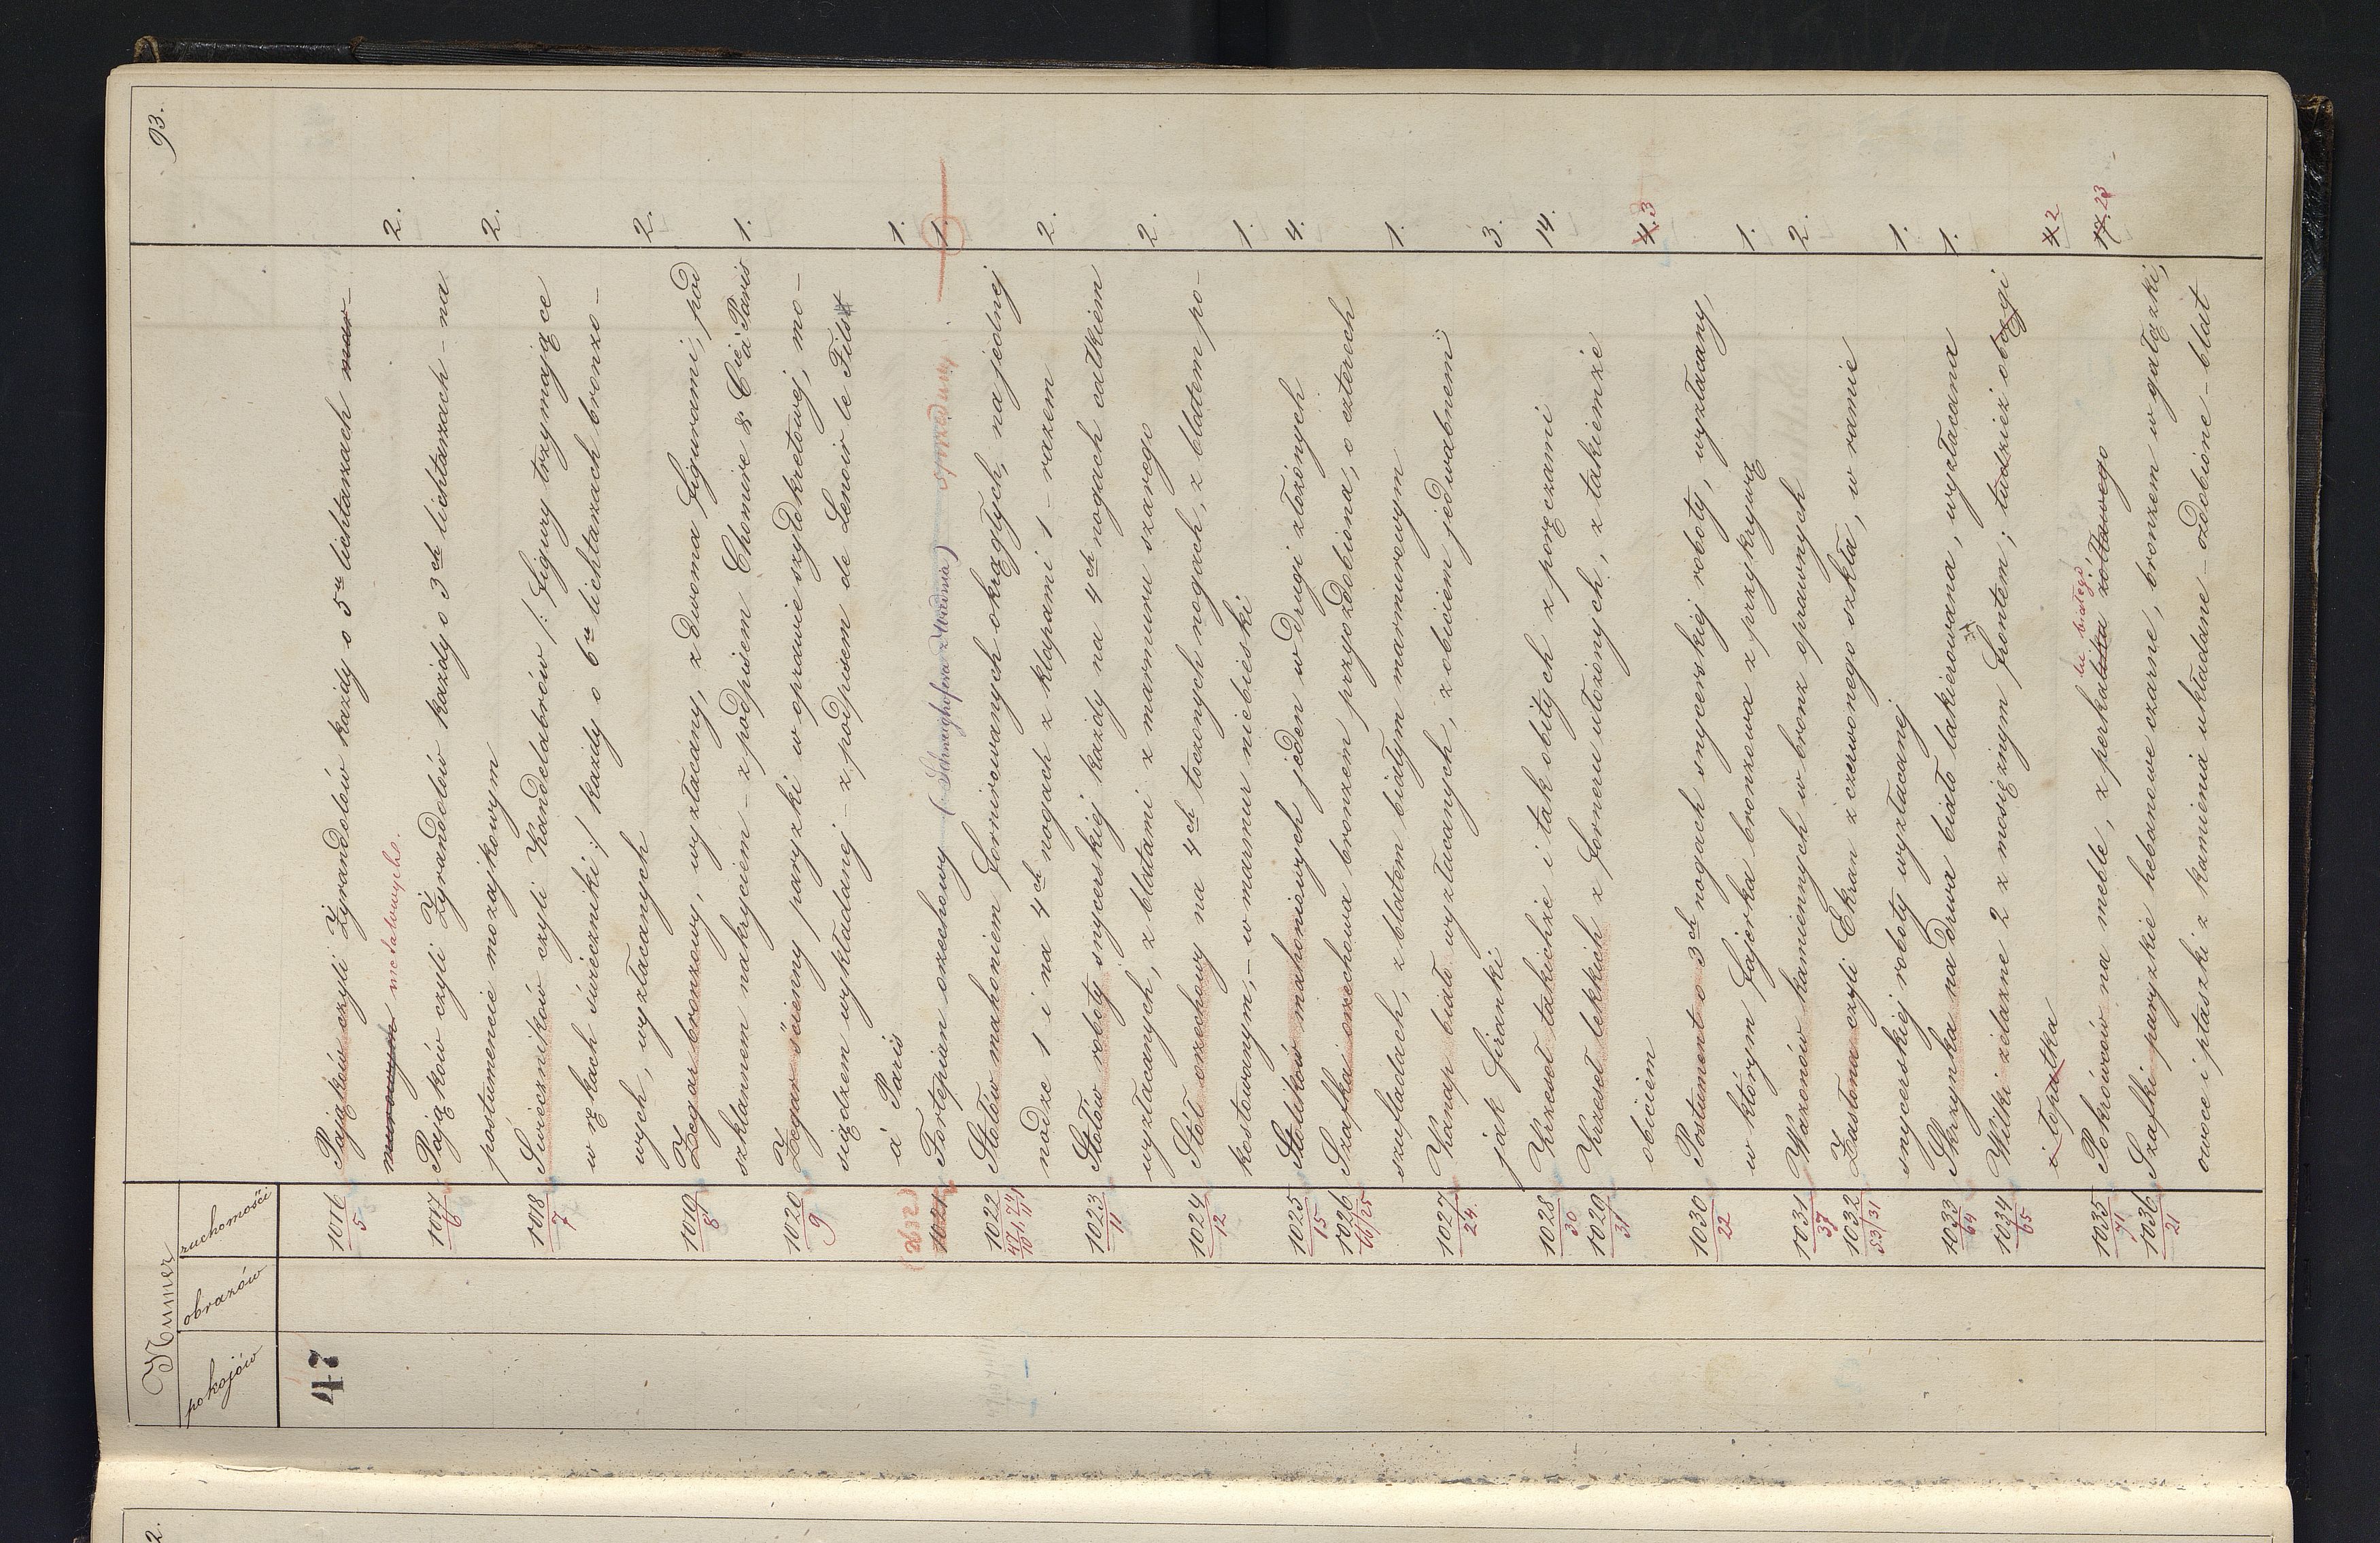 93.
Numer
pokojów obrazów ruchomości
47
1016/5 Pająków czyli Żyrandolów każdy o 5u lichtarzach mar-
murowych metalowych. 2.
1017/6 Pająków czyli Żyrandolów każdy o 3ch lichtarzach – na
postumencie mozajkowym 2.
1018/7 Świeczników czyli Kandelabrów /: figury trzymające
w rękach świeczniki :/ każdy o 6u lichtarzach bronzo-
wych, wyzłacanych 2.
1019/8 Zegar bronzowy, wyzłacany, z dwoma figurami, pod
szklannem nakryciem – z podpisem Chomire & Cie à Paris 1.
1020/9 Zegar ścienny paryzki w oprawie szyldkretowej, mo-
siądzem wykładanej – z podpisem de Lenoir le Fils
à Paris 1.
1021 Fortepian orzechowy (Schweighofera z Wiednia) sprzedany 1.
1022 Stołów mahoniem fornirowanych okrągłych, na jednej
nodze 1 i na 4ch nogach z klapami 1 – razem 2.
1023/11 Stołów roboty snycerskiej każdy na 4ch nogach całkiem
wyzłacanych, z blatami z marmuru szarego 2.
1024/12 Stół orzechowy na 4ch toczonych nogach, z blatem po-
kostowanym, – w marmur niebieski 1.
1025/15 Stolików mahoniowych jeden w drugi złożonych 4.
1026 Szafka orzechowa bronzem przyozdobiona, o czterech
szufladach, z blatem białym marmurowym 1.
1027/24 Kanap biało wyzłacanych, z obiciem jedwabnem
jak firanki 3.
1028/30 Krzeseł takichże i tak obitych z poręczami 14.
1029/31 Krzeseł lekkich z forneru ułożonych, z takiemże
obiciem 4. 3
1030/22 Postument o 3ch nogach snycerskiej roboty, wyzłacany,
w którym fajerka bronzowa z przykrywą 1.
1031/37 Wazonów kamiennych w bronz oprawnych 2.
1032/53/31 Zasłona czyli Ekran z czerwonego szkła, w ramie
snycerskiej roboty wyzłacanej 1.
1033/64 Skrzynka na drwa biało lakierowana, wyzłacana 1.
1034/65 Wilki żelazne 2 z mosiężnym frontem; tudzież obcęgi
i łopatka 4 2
1035/71 Pokrowców na meble, z perkaliku białego żółtawego 17. 23
1036/21 Szafki paryzkie hebanowe czarne, bronzem w gałązki,
owoce i ptaszki z kamienia układane – ozdobione – blat
2.